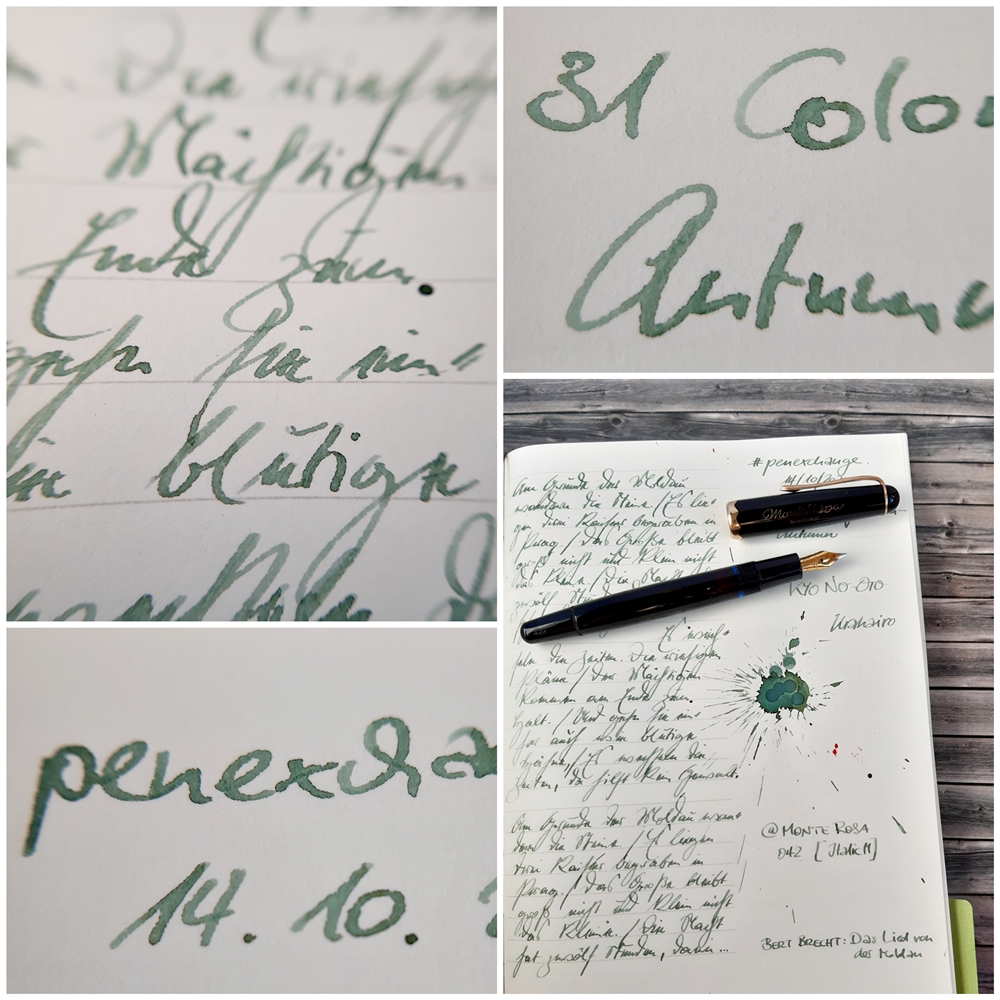 . Die riesigen
Mächtigen
Ende zum
gehn sie ein=
wie blutige
31 Colo
Autumn
penexcha
14. 10.
#penexchange.
14/10/20
Autumn
Kyo No-Oto
Urahairo
Am Grunde der Moldau
wandern die Steine / Es lie=
gen drei Kaiser begraben in
Prag. / Das Große bleibt
groß nicht und klein nicht
das Kleine. / Die Nacht
zwölf Stunden
Es wech=
seln die Zeiten. Die riesigen
Pläne / der Mächtigen
kommen am Ende zum
Halt. / Und gehn sie ein=
her auch wie blutige
Hähne, / Es wechseln die
Zeiten, da hilft kein Gewalt.
Am Grunde der Moldau wan=
dern die Steine / Es liegen
drei Kaiser begraben in
Prag. / Das Große bleibt
groß nicht und klein nicht
das Kleine. / Die Nacht
hat zwölf Stunden, dann...
@MONTE ROSA
042 [Italic M]
BERT BRECHT: Das Lied von
der Moldau